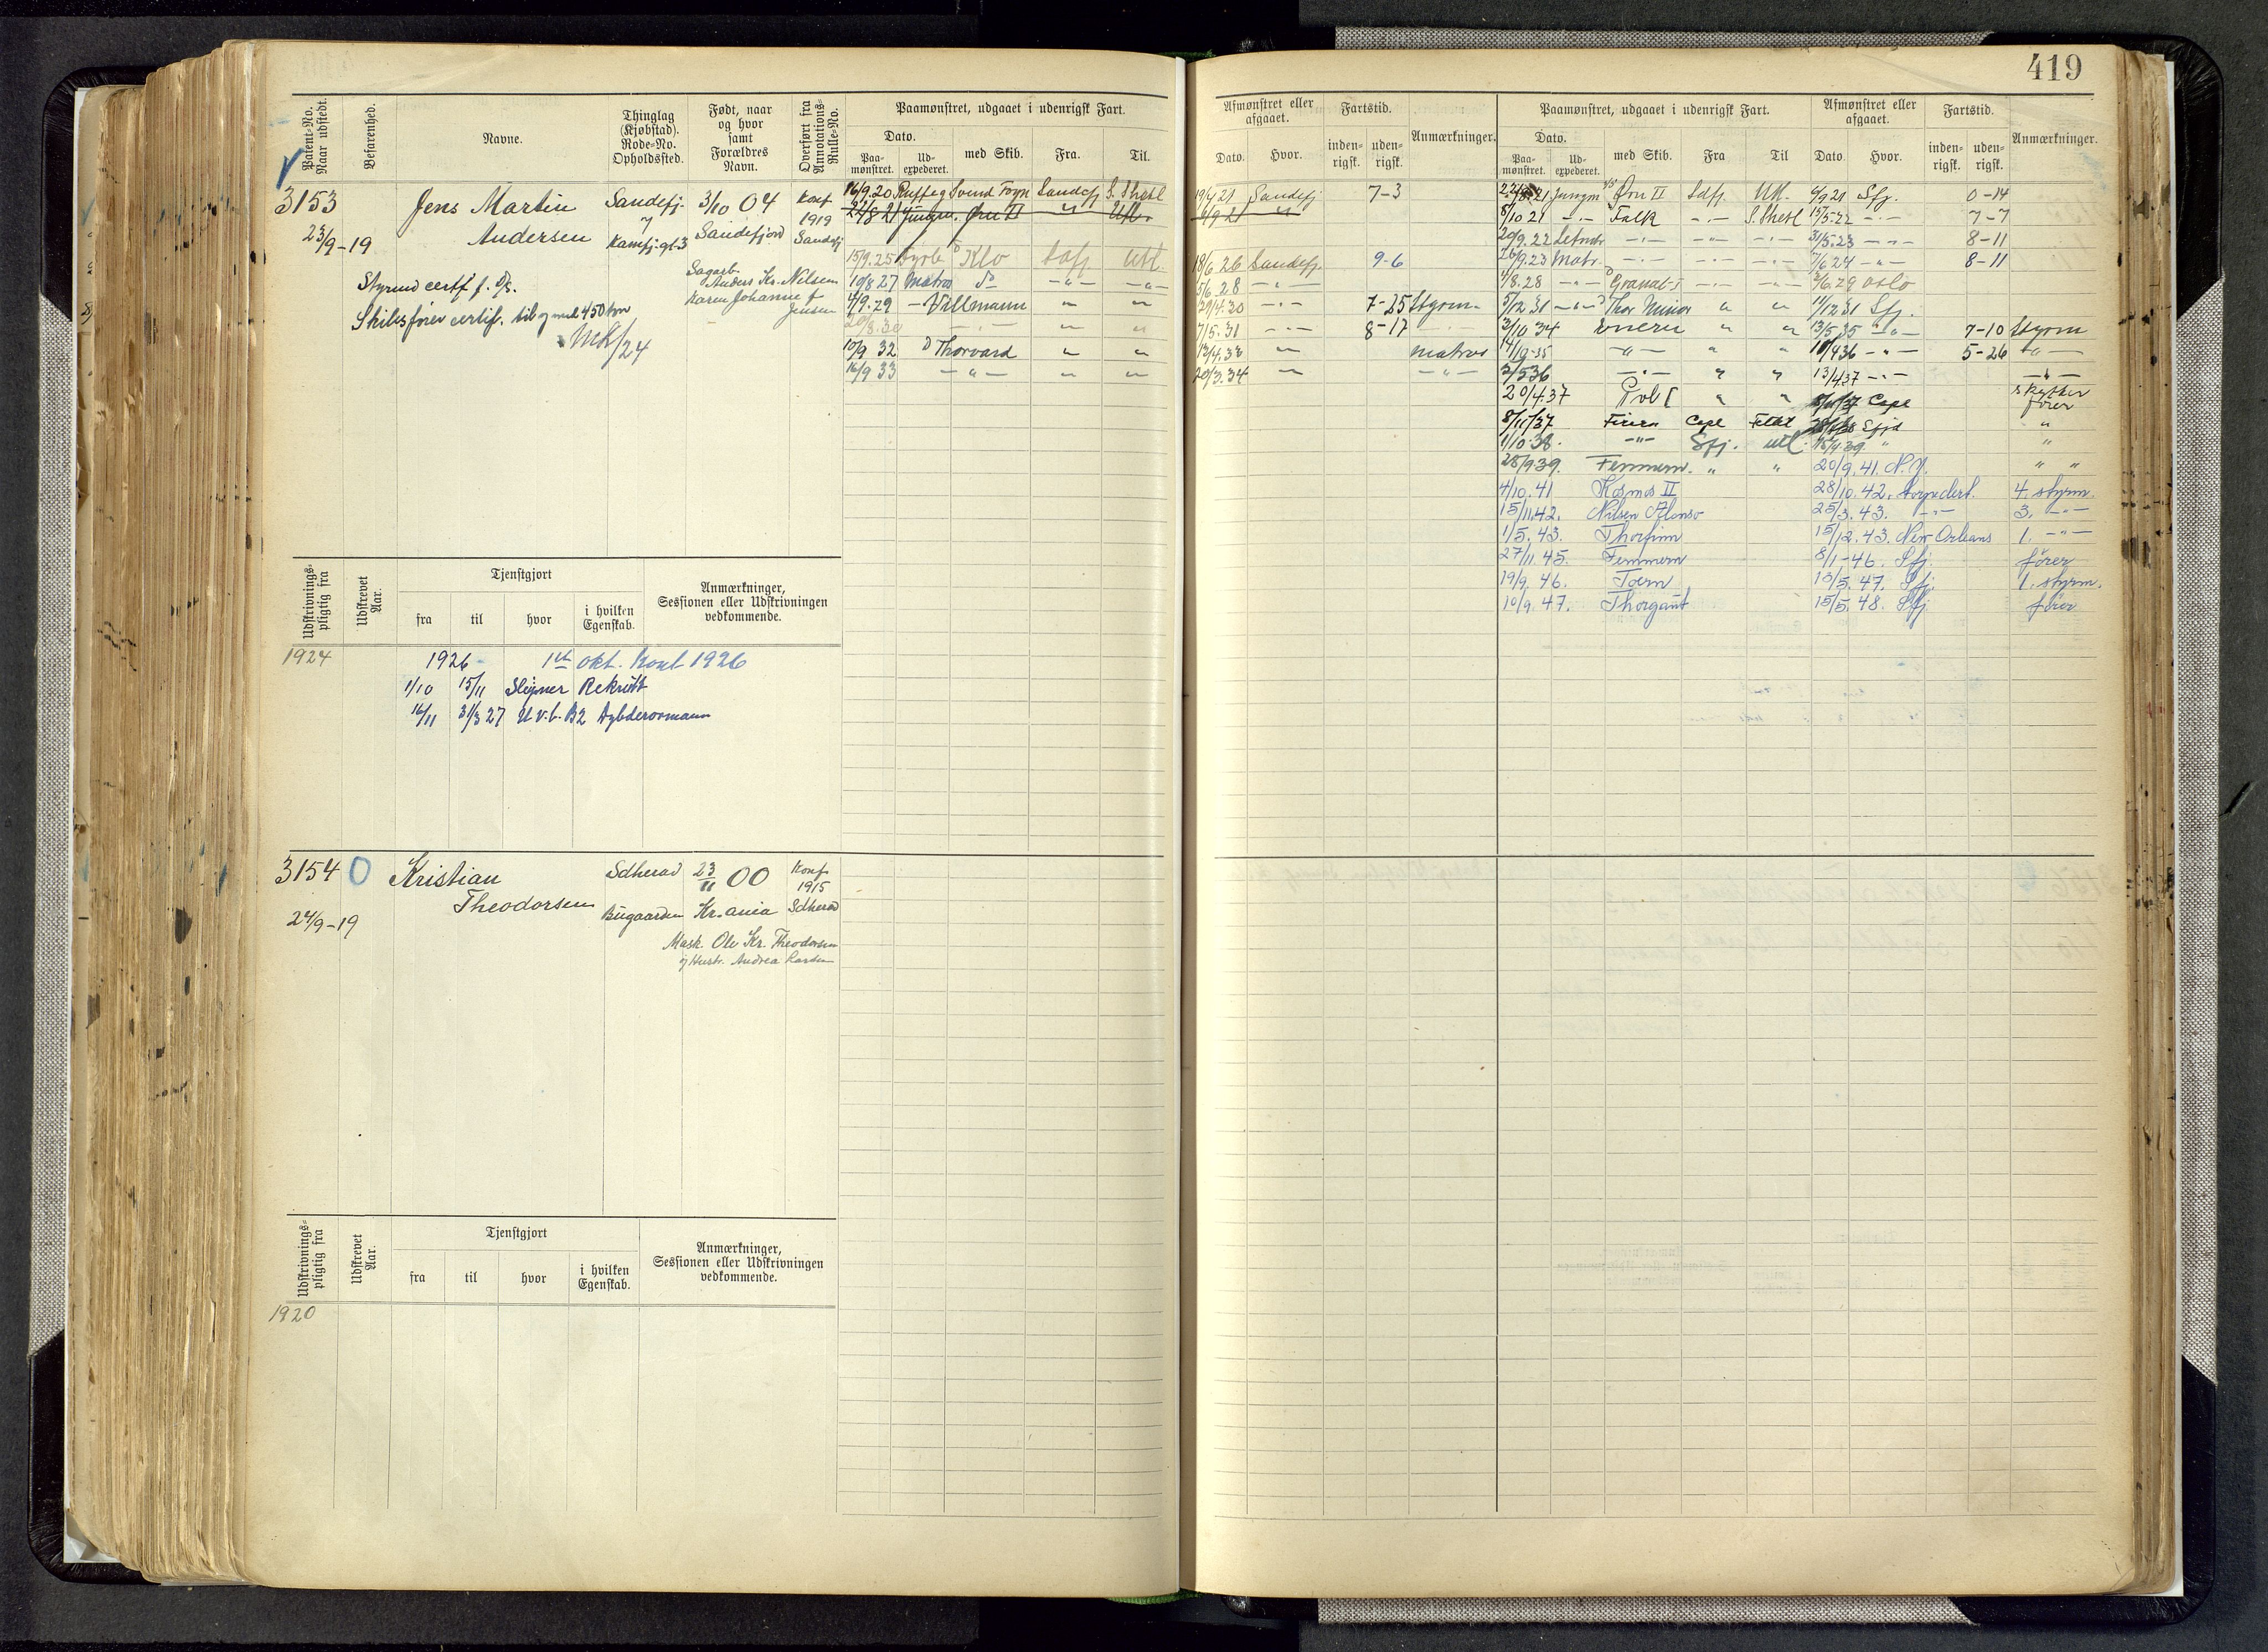 419
Patent-No. Naar udstedt.
Befarenhed.
Navne.
Thinglag (Kjøbstad). Rode-No. Opholdssted.
Født, naar og hvor samt Forældres Navn.
Overført fra Annotations-Rulle-No.
Paamønstret, udgaaet i udenrigsk Fart.
Dato.
Paa-mønstret. Ud-expederet. med Skib. Fra. Til.
Afmønstret eller afgaaet. Fartstid. Anmærkninger.
Dato. Hvor. inden-rigsk. uden-rigsk.
Paamønstret, udgaaet i udenrigsk Fart. Afmønstret eller afgaaet. Fartstid. Anmærkninger.
Dato.
Paa-mønstret. Ud-expederet. med Skib. Fra Til Dato. Hvor. inden-rigsk. uden-rigsk.
3153 Jens Martin Sandefj. 3/10 04 Konf
Andersen 1919
23/9-19 Kamfj.gt. 3 Sandefjord Sandefj
Sagarb. Anders Kr. Nilsen
Karen Johanne f Jensen
Styrmd certf f. D/s.
Skibsfører certif. til og med 450 ton
MK/24
16/9.20 Svend Foyn Sandefj S. Shetl
24/8 21 Jungm. Ørn II " Utl.
15/9.25 Klo Safj Utl.
10/8 27 Matros do -"- -"-
4/9.29 - Villmann " "
20/8.30 -"- " "
10/9 32 D Thorvard " "
16/9 33 -"- " "
19/4 21 Sandefj 7-3
6/9 21 "
18/6 26 Sandefj. 9-6
5/6 28 -"-
29/4.30 -"- 7-25 Styrm.
7/5.31 -"- 8-17 -"-
13/4.33 " matros
20/3.34 " -"-
22/8.21 Jungm Ørn II Safj Utl. 6/9 21 Sfj. 0-14
8/10 21 -"- Falk -"- S. Shetl 15/5-22 -"- 7-7
20/9.22 Letmatr -"- -"- -"- 31/5.23 -"- 8-11
26/9.23 Matr. -"- -"- -"- 7/6 24 -"- 8-11
4/8.28 -"- -"- -"- 3/6.29 Oslo
5/12 31 -"- Thor Minor " " 11/12 31 Sfj.
3/10 34 " " 13/5 35 -"- 7-10 Styrm
14/10-35 -"- " " 10/4 36 -"- 5-26 -"-
2/5 36 -"- " " 13/4 37 -"- -"-
20/4.37 Pol I " " 8/11/37 Cape skytter fører
8/11/37 Cape Feltet Sfjd "
1/10.38. -"- Sfj. utl. 15/4.39. " "
28/9 39. Femmern. " " 20/9.41. N.Y. " "
4/10.41 Kosmos II 28/10.42. 4. styrm.
15/11.42. Nilsen Alonso 25/3.43. -"- 3. -"-
1/5.43. Thorfinn 15/12.43. New Orleans 1. -"-
27/11 45. Femmern 8/1-46. Sfj. fører
19/9.46. Tærn 13/5.47. Sfj. 1. styrm.
10/9.47. Thorgaut 15/5.48. Sfj. fører
Udskrivnings-pligtig fra
Udskrevet Aar.
Tjenstgjort
fra til hvor i hvilken Egenskab.
Anmærkninger, Sessionen eller Udskrivningen vedkommende.
1924 1926 1ste okt. Kont 1926
1/10 15/11 Sleipner Rekrutt
16/11 31/3 27 U.v.b. B2 Dybderormann
3154 0 Kristian Sdherad 23/11 00 Konf
Theodorsen 1915
24/9-19 Bugaarden Kr.ania Sdherad
Mask. Ole Kr. Theodorsen
og Hustr. Andrea Larsen
Udskrivnings-pligtig fra
Udskrevet Aar.
Tjenstgjort
fra til hvor i hvilken Egenskab.
Anmærkninger, Sessionen eller Udskrivningen vedkommende.
1920